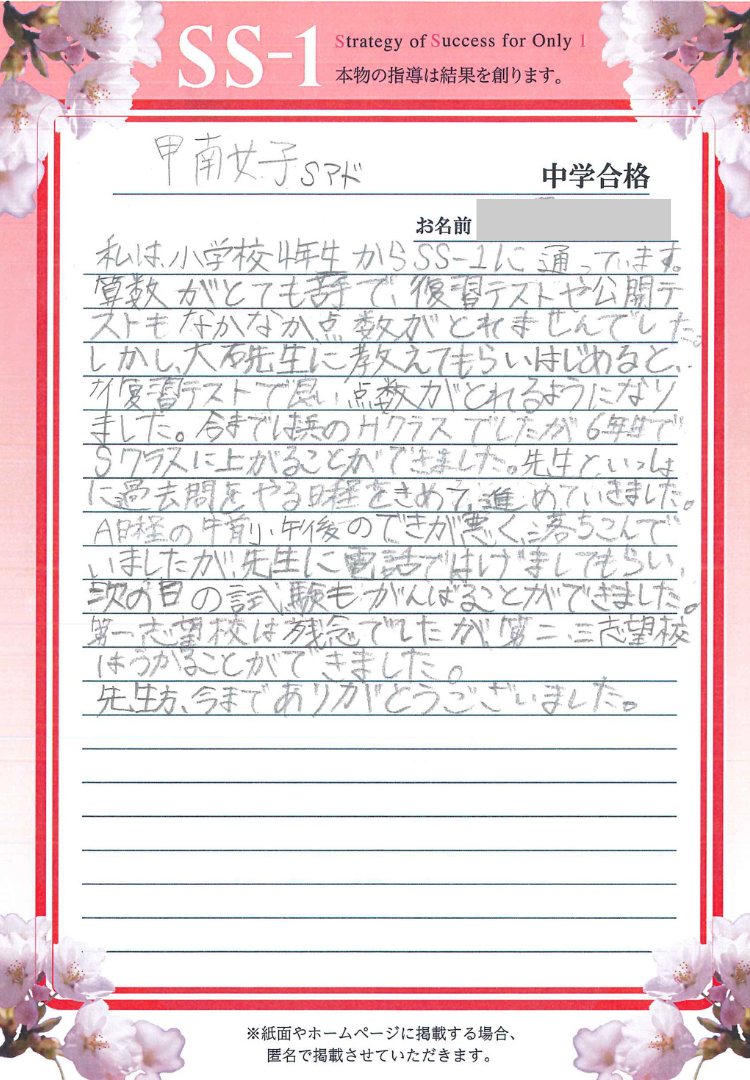 SS-1 Strategy of Success for Only 1
本物の指導は結果を創ります。
甲南女子Sアド
中学合格
お名前
私は、小学校4年生からSS-1に通っています。
算数がとても苦手で、復習テストや公開テ
ストもなかなか点数がとれませんでした。
しかし、大石先生に教えてもらいはじめると、
復習テストで良い点数がとれるようになり
ました。今までは浜のHクラスでしたが6年生で
Sクラスに上がることができました。先生といっしょ
に過去問をやる日程をきめて、進めていきました。
A日程の午前、午後のできが悪く、落ちこんで
いましたが、先生に電話ではげましてもらい、
次の日の試験もがんばることができました。
第一志望校は残念でしたが、第二、三志望校
はうかることができました。
先生方、今までありがとうございました。
※紙面やホームページに掲載する場合、
匿名で掲載させていただきます。